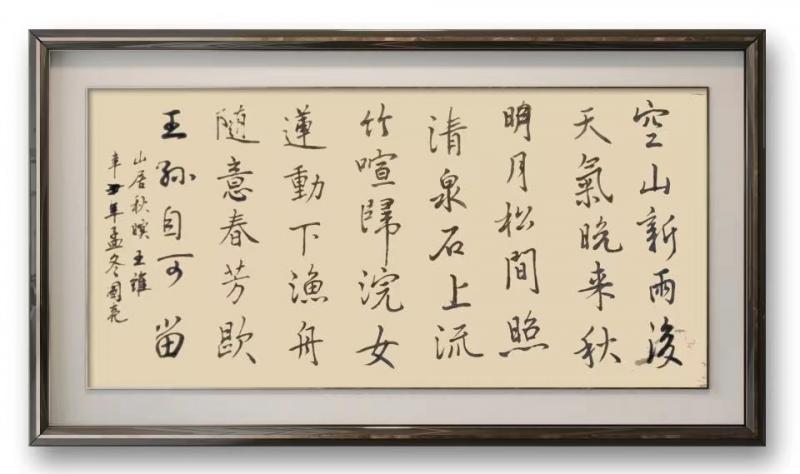 空山新雨後
天氣晚来秋
明月松間照
清泉石上流
竹喧歸浣女
蓮動下漁舟
隨意春芳歇
王孫自可畱
山居秋暝王維
辛丑年孟冬国亮